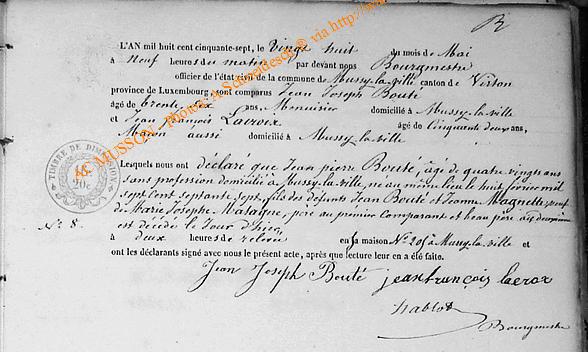 R
L'AN mil huit cent cinquante-sept, le Vingt huit du mois de Mai
à Neuf heures du matin par devant nous Bourgmestre
officier de l'état civil de la commune de Mussy-la-ville canton de Virton
province de Luxembourg, sont comparus Jean Joseph Bouté
âgé de trente six ans, Menuisier domicilié à Mussy-la-ville
et Jean françois Lacroix âgé de Cinquante deux ans,
Maçon aussi domicilié à Mussy-la-ville
Lesquels nous ont déclaré que Jean pierre Bouté, âgé de quatre vingts ans
sans profession domicilié à Mussy-la-ville, né au même lieu le huit février mil
sept cent septante sept, fils des défunts Jean Bouté et Jeanne Magnette, veuf
de Marie Josephe Masaque, père au premier Comparant et beau père au deuxième
N° 8. est décédé le jour d'hier
à deux heures de relevée en sa maison N° 205 à Mussy-la-ville et
ont les déclarants signé avec nous le présent acte, après que lecture leur en a été faite.
Jean Joseph Bouté jean françois lacrox
hablot
Bourgmestre
TIMBRE DE DIMENSION
45
20c
MUSSON Photos A Schneidesch © via http://www